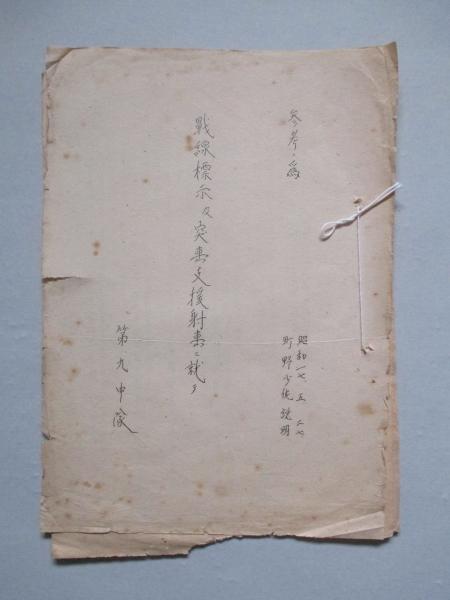 参考ノ為
昭和一七、五、二七
町野少佐説明
戦線標示及突撃支援射撃ニ就テ
第九中隊